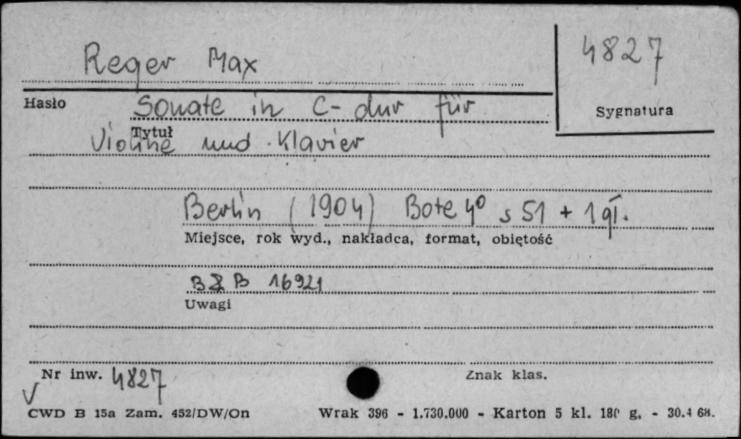 Reger Max
4827
Hasło
Sygnatura
Sonate in C-dur für
Tytuł
Violine und Klavier
Berlin (1904) Bote 4° s 51 + 1 gł.
Miejsce, rok wyd., nakładca, format, objętość
B & B 16921
Uwagi
Nr inw. 4827
Znak klas.
CWD B 15a Zam. 452/DW/On
Wrak 396 - 1.730.000 - Karton 5 kl. 180 g. - 30.4 68.